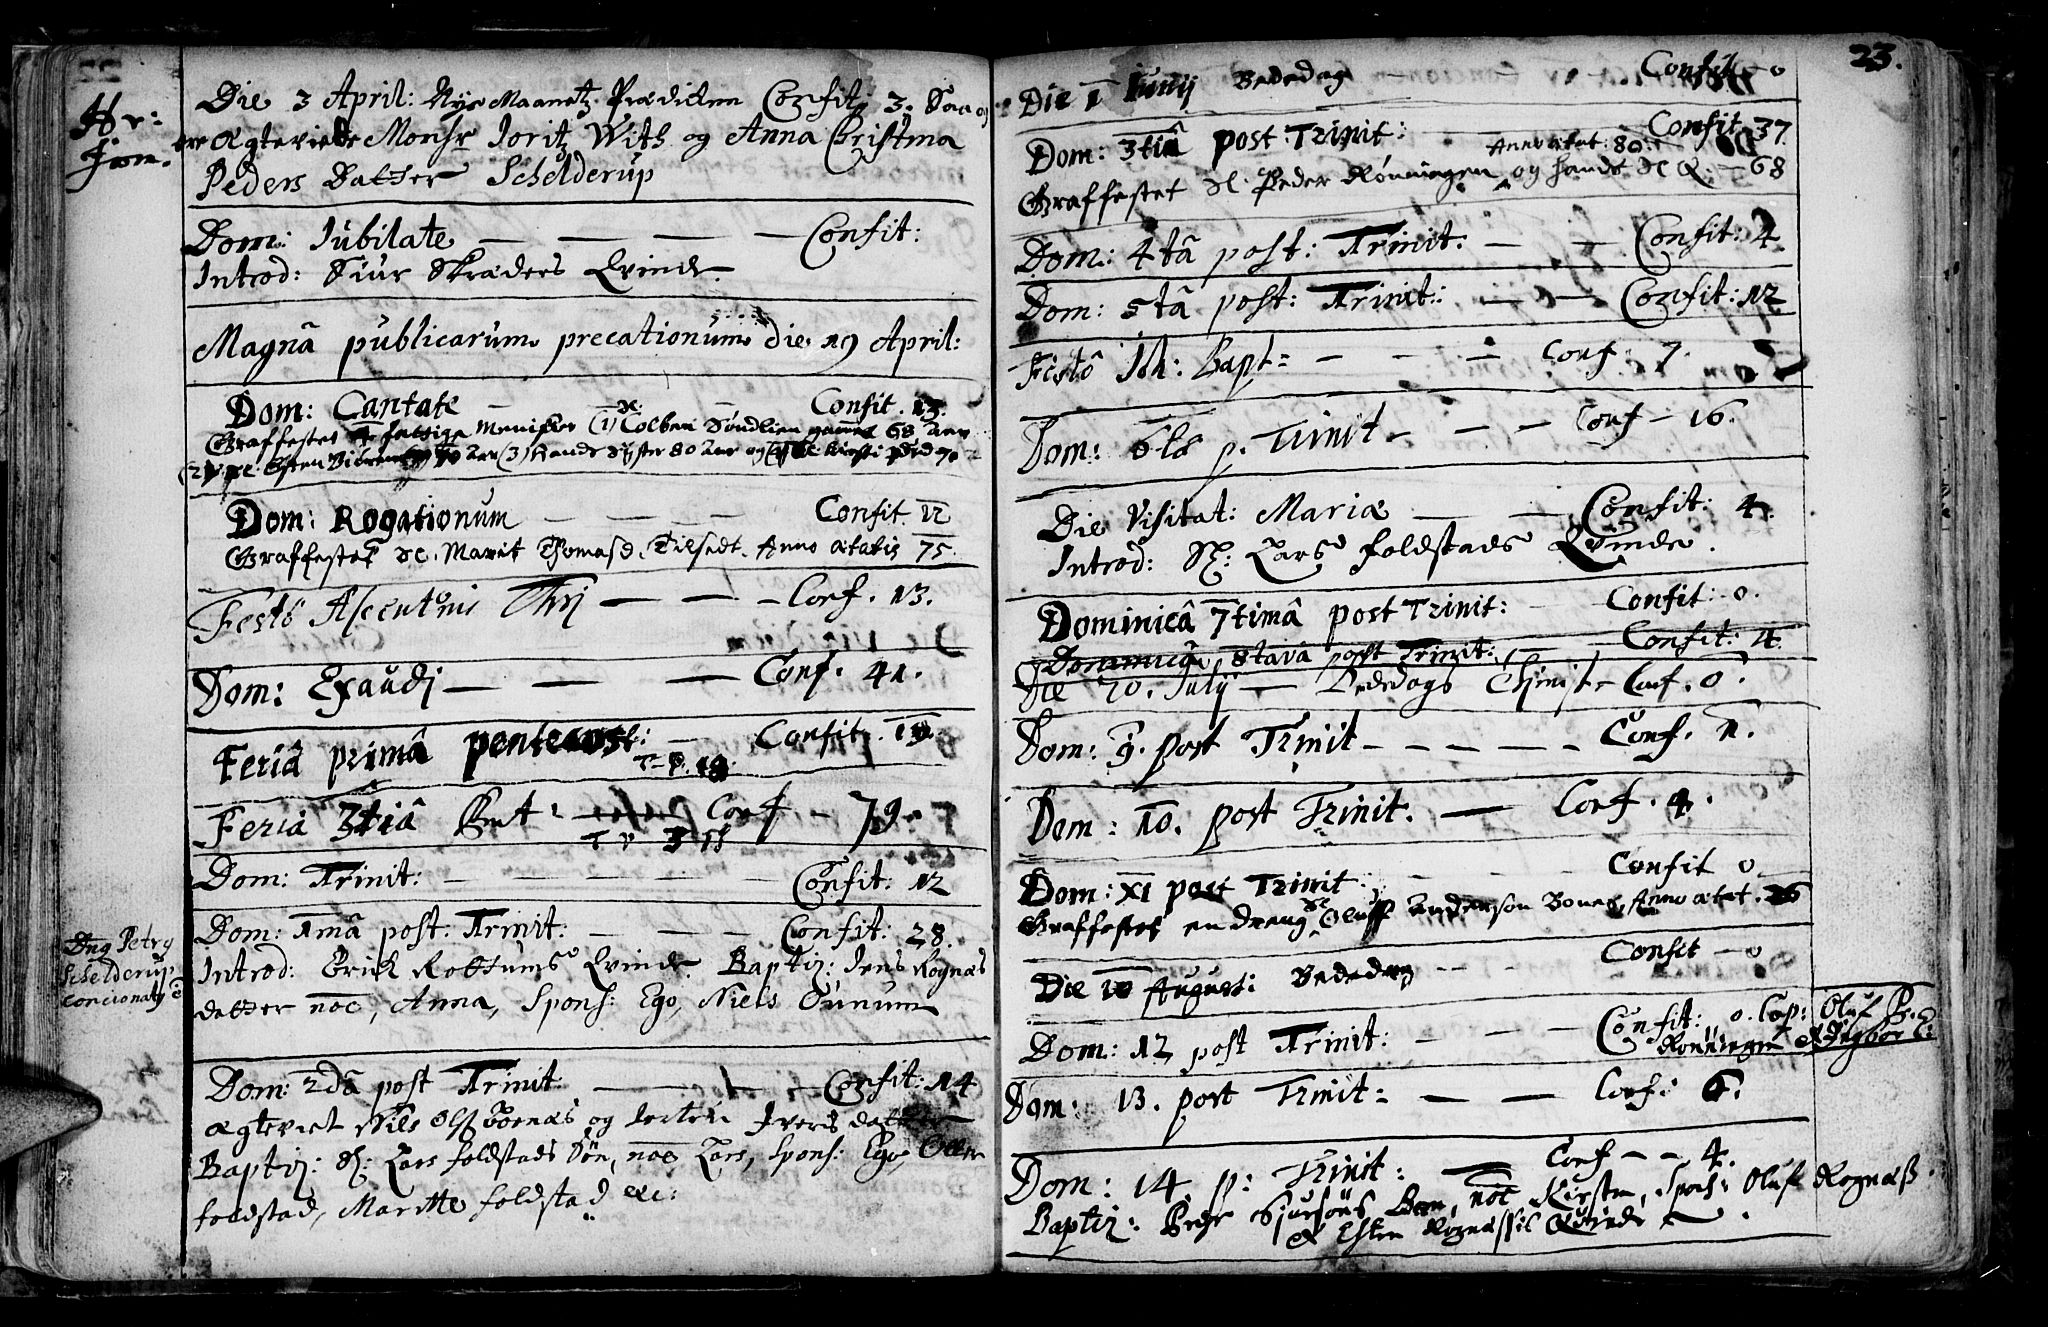 22
Hr:
Die 3 April: Nye Maanetz Prædicken Confit: 3. Saa og
ere Ægteviede Monsr Joritz With og Anna Cristina
Peders Datter Schelderup
Dom: Jubilate — — — — Confit:
Introd: Siur Skræders Qvinde
Magnâ publicarum precationum die 19 April:
Dom: Cantate — — Confit. 13.
Graffestet fattige Menisker (1) Sl. Colben Søndlien gammel 68 aar
80 aar og
Dom: Rogationum — — — — Confit. 12
Graffestet Sl. Marit Thomasd. Tilsedt. Anno ætatis 75.
Festô Ascentionis Chrj — — — Conf. 13.
Dom: Exaudj — — — Conf. 41.
Feriâ primâ pentecost: — Confit. 19.
Feria 3tiâ Pent: Conf — 79.
Dom: Trinit: — — — — — Confit: 12
Dom: 1mâ post. Trinit: — — — Confit: 28.
Dns Petrus
Schelderup
Introd: Erick Rottums Qvinde. Baptiz: Jens Rognæs
datter noe, Anna, Spons: Ego, Niels Ounum
Dom: 2dâ post Trinit: — — — Confit: 14
Ægteviet Nils Olss Boenæs og Ivers datter
Baptiz: Sl: Lars foldstads Søn, noe Lars, spons: Ego,
foldstad, Maritte foldstad etc:
23.
Die 1 Junij Bededag — — Confit — 0
Dom: 3tiâ post Trinit: — — Confit. 37.
Anno ætat: 80
Graffestet Sl. Peder Rønningen og hands Sl. Q. — 68
Dom: 4tâ post: Trinit: — — Confit: 4
Dom: 5tâ post: Trinit: — — Confit: 12
Festô Joh: Bapt: — — — Conf: 7.
Dom: 6ta p. Trinit — — — Conf — 16.
Die Visitat: Mariæ — — Confit: 4.
Introd: Lars foldstads Qvinde.
Dominicâ 7timâ post Trinit: — Confit: 0.
Dominicâ 8tavâ post Trinit: — Confit: 4.
Die 20. Julij — Bededags Conf. 0.
Dom: 9. post Trinit — — — — — Conf. 1.
Dom: 10. post Trinit. — Conf. 4.
Dom: XI post Trinit: — — — Confit 0
Graffestet en dreng Sl Oluff Anderson Bones, Anno ætat. 26
Die 10 Augusti Bededag — — Confit — 0
Dom: 12 post Trinit: — — — Confit: 0. Cop: Oluf P.
Rønningen & Ingbor E:
Dom: 13. post Trinit: — — — Conf: 6.
Dom: 14 p: Trinit: — Conf — — 4.
Baptiz: Peder Sjursøns Barn, noe Kirsten, Spons: Oluf Rognæss
& Esten Rognæss Qvinde